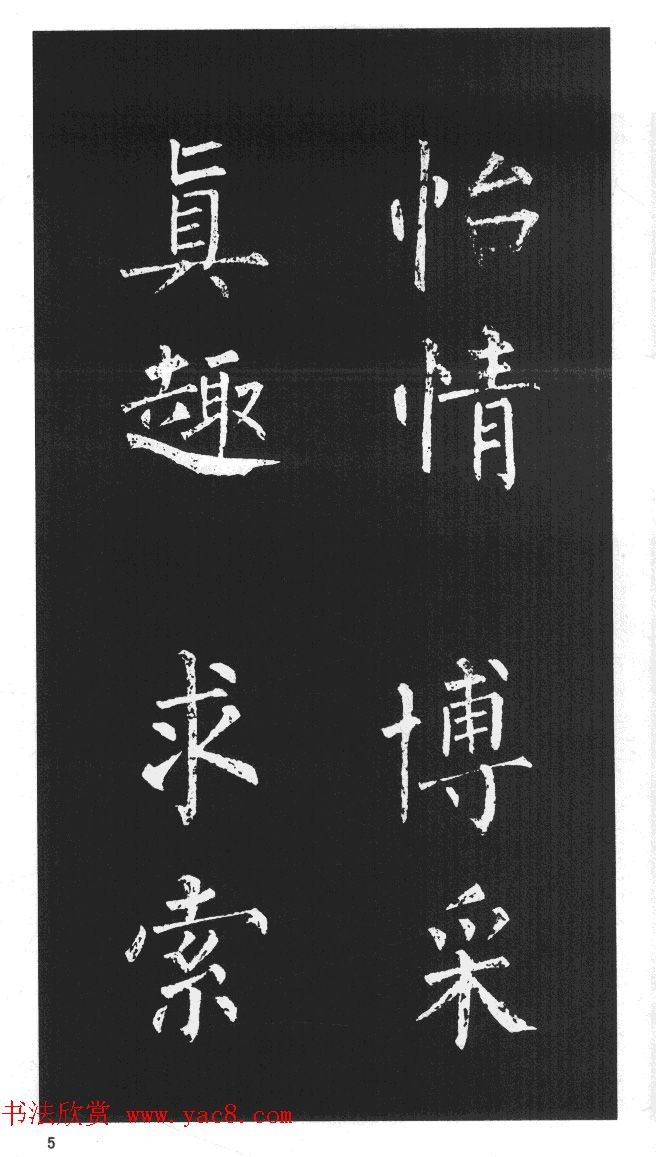 怡情博采
眞趣求索
书法欣赏 www.yac8.com
5